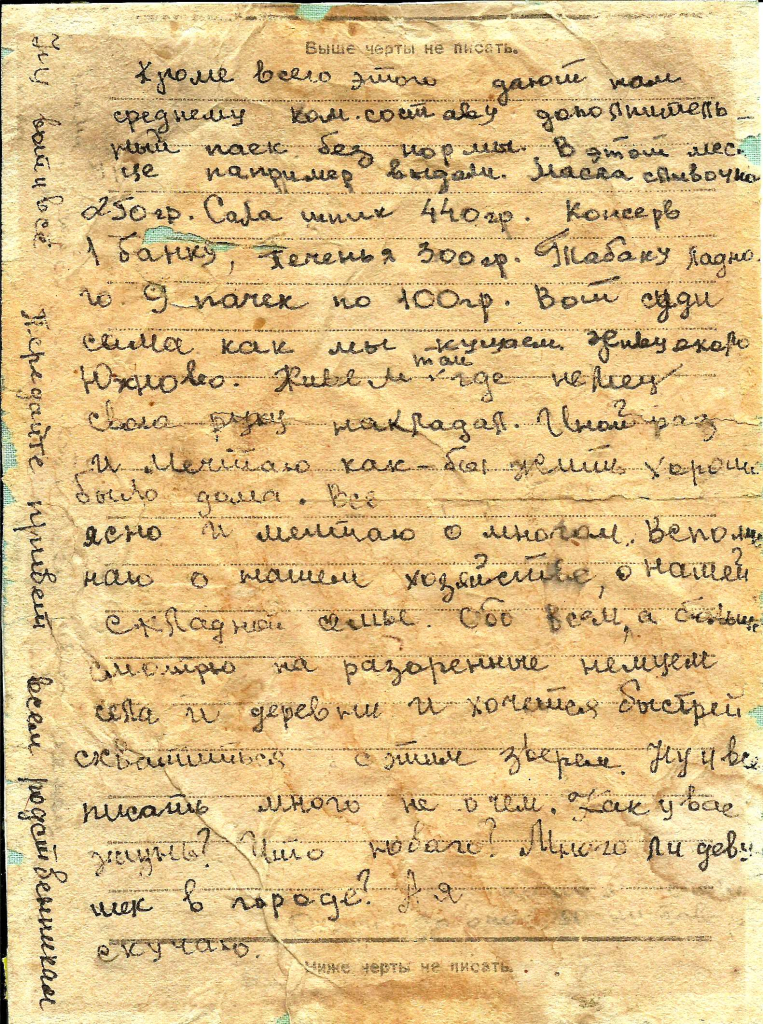 Выше черты не писать.
Кроме всего этого дают нам
среднему ком.составу дополнитель
ный паек без нормы. В этом мес-
це например выдали. Масла сливочна
250гр. Сала шпик 440гр. Консерв
1 банку, Печенья 300гр. Табаку ладно
го 9 пачек по 100гр. Вот суди
сама как мы кушаем. Живу около
Юхново. Живем там где немец
свою руку накладал. Иной раз
и мечтаю как-бы жить хорошо
было дома. Все
ясно и мечтаю о многом. Вспоми
наю о нашем хозяйстве, о нашей
складной семье. Обо всем, а больше
смотрю на разоренные немцем
села и деревни и хочется быстрей
схватиться с этим зверем. Ну и все
писать много не о чем. Как у вас
жизнь? Что нового? Много ли деву
шек в городе? А я
скучаю.
Ниже черты не писать.
Ну вот и всё Передайте привет всем родственникам